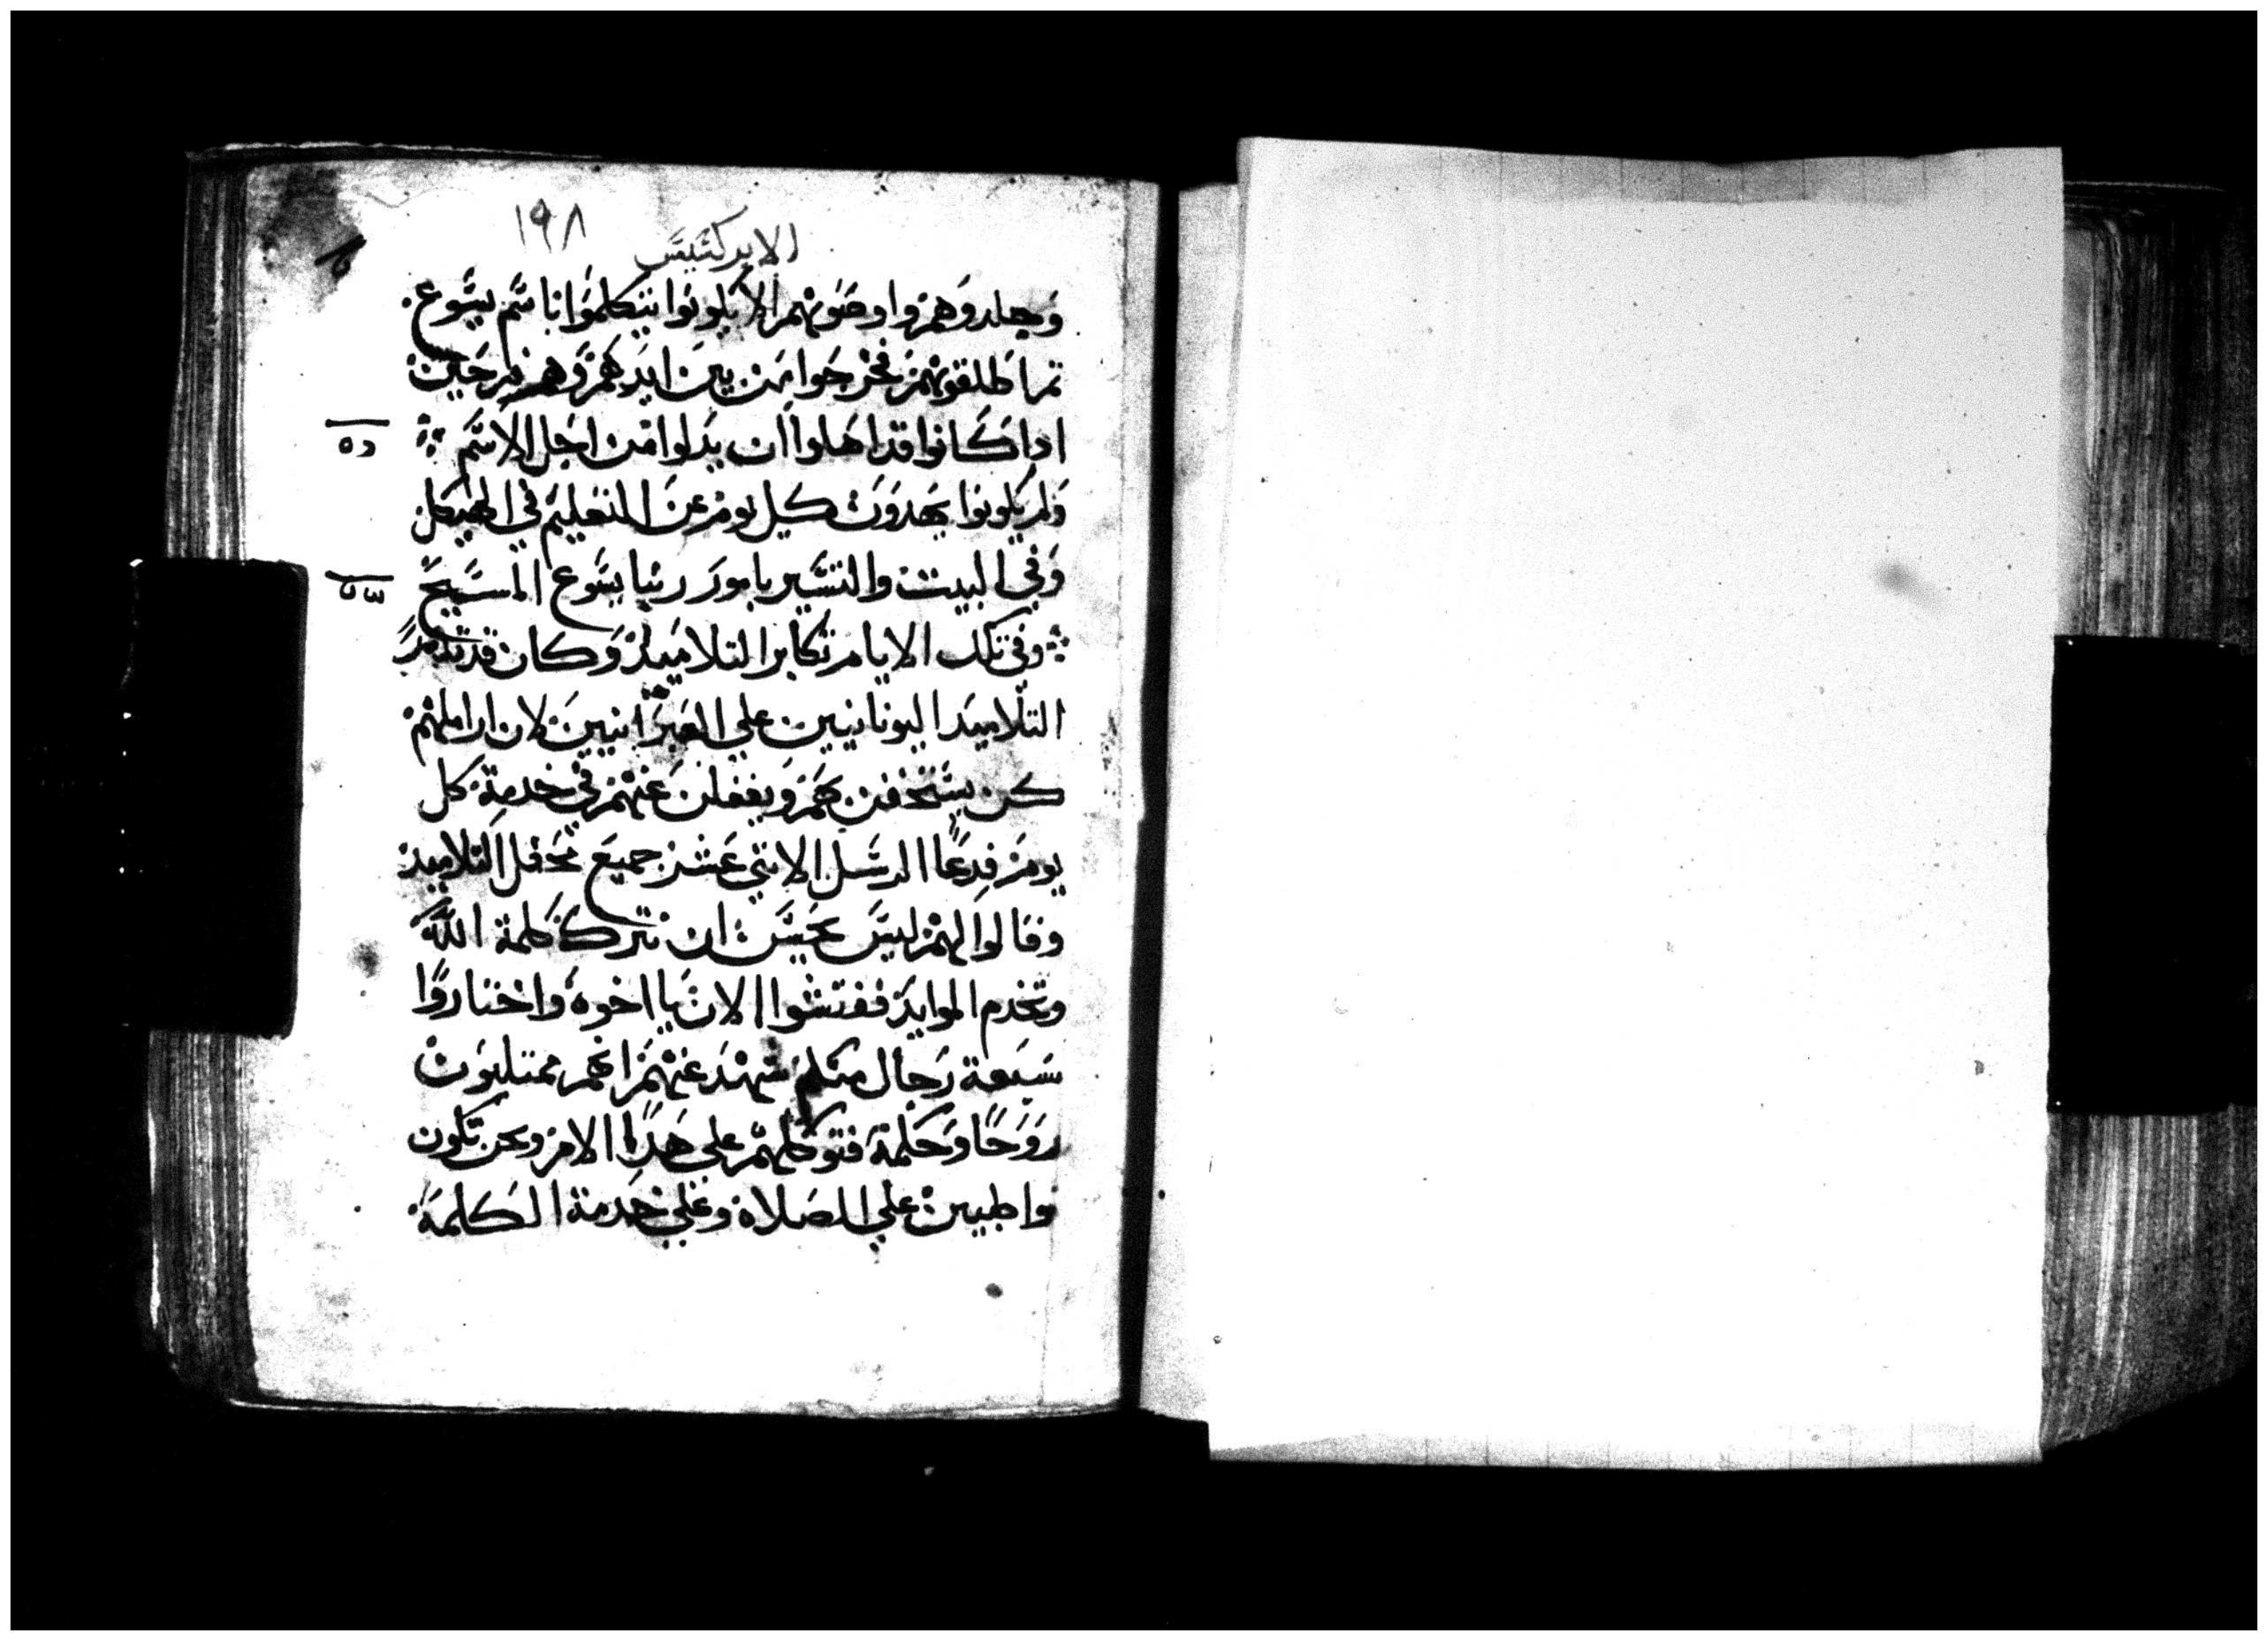 ١٩٨
الابركسيس
وجلدوهم واوصوهم الا يكونوا يتكلموا باسم يسوع
تم اطلقوهم فخرجوا من بين ايديهم وهم فرحين
اداكانوا قد اهلوا ان يدلوا من اجل الاسم
ولم يكونوا يهدون كل يوم عن التعليم في الهيكل
وفي البيت والتبشير بامور ربنا يسوع المسيح
وفي تلك الايام تكاثر التلاميد وكان قد تدمر
التلاميد اليونانيين علي العبرانيين لان اراملهم
كن يستخفن بهم ويغفلن عنهم في خدمة كل
يوم فدعا الرسل الاتني عشر جميع محفل التلاميد
وقالوا لهم ليس يحسن ان نترك كلمة الله
ونخدم الموايد ففتشوا الان يا اخوه واختاروا
سبعة رجال منكم شهد عنهم انهم ممتليون
روحا وحكمة فنوكلهم علي هدا الامر ونحن نكون
مواظبين علي الصلاة وعلي خدمة الكلمة